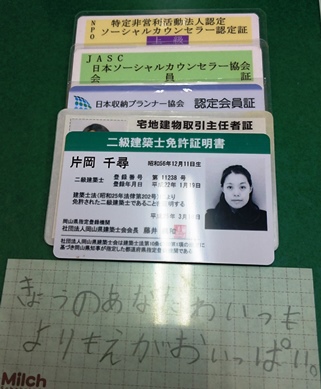 NPO
特定非営利活動法人認定
ソーシャルカウンセラー認定証
上級
JASC
日本ソーシャルカウンセラー協会
会員証
日本収納プランナー協会 認定会員証
宅地建物取引主任者証
二級建築士免許証明書
片岡 千尋 昭和56年12月11日生
二級建築士 登録番号 第11238号
登録年月日 平成22年1月19日
建築士法(昭和25年法律第202号)
免許された二級建築士であることを 明する
岡山県指定登録機関
社団法人岡山県建築士会会長 藤井
きょうのあなたわいつも
よりもえがおいっぱい。
Milch